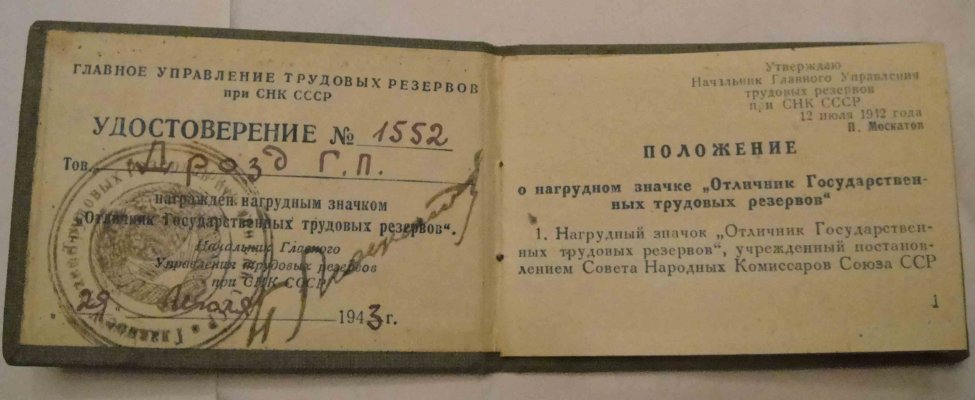 ГЛАВНОЕ УПРАВЛЕНИЕ ТРУДОВЫХ РЕЗЕРВОВ
при СНК СССР
УДОСТОВЕРЕНИЕ № 1552
Тов. Дрозд Г.П.
награжден нагрудным значком
„Отличник Государственных трудовых резервов“.
Начальник Главного
Управления трудовых резервов
при СНК СССР
29 1943 г.
Утверждаю
Начальник Главного Управления
трудовых резервов
при СНК СССР
12 июля 1942 года
П. Москатов
ПОЛОЖЕНИЕ
о нагрудном значке „Отличник Государствен-
ных трудовых резервов“
1. Нагрудный значок „Отличник Государствен-
ных трудовых резервов“, учрежденный постанов-
лением Совета Народных Комиссаров Союза ССР
1